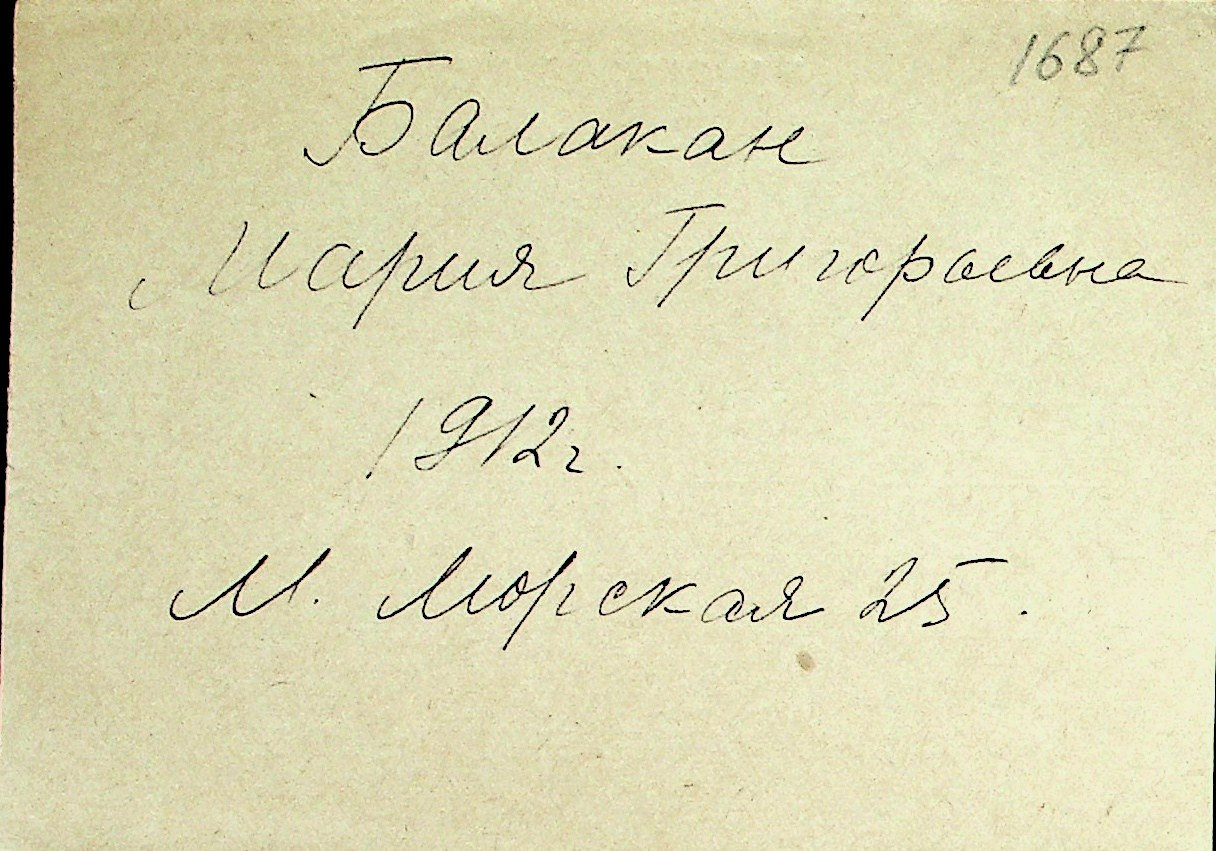 1687
Балакан
Мария Григорьевна
1912г.
М. Морская 25.